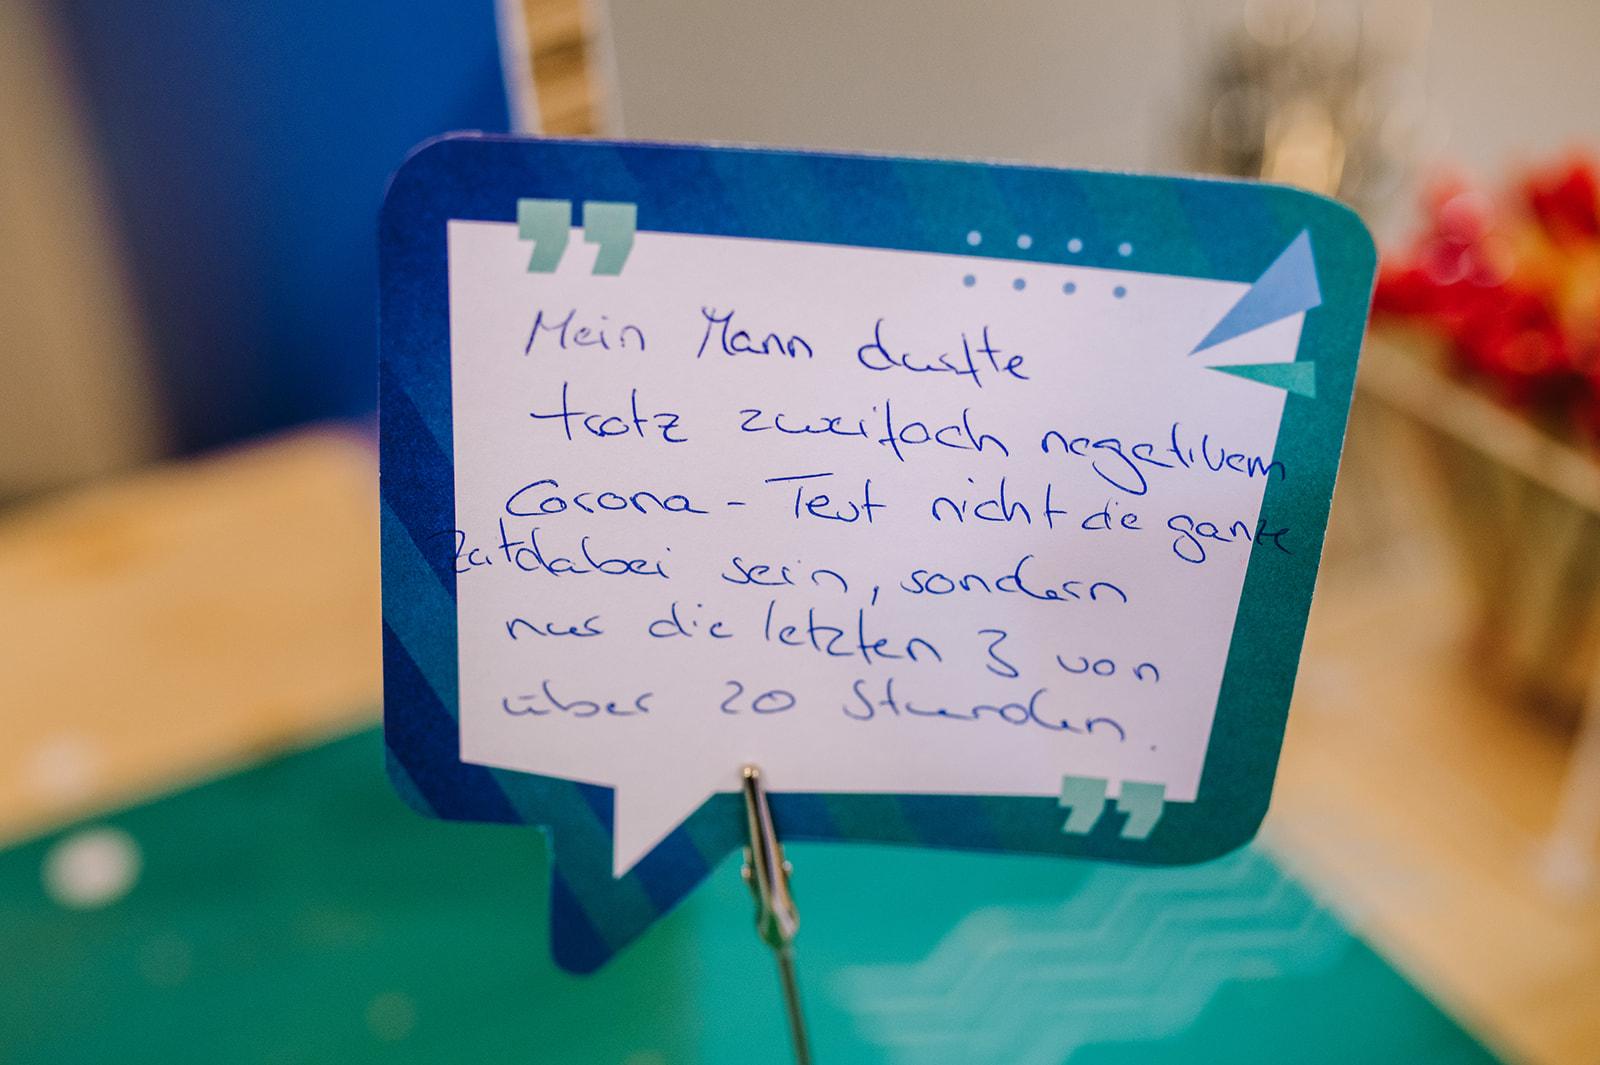 Mein Mann durfte
trotz zweifach negativem
Corona-Test nicht die ganze
Zeit dabei sein, sondern
nur die letzten 3 von
über 20 Stunden.